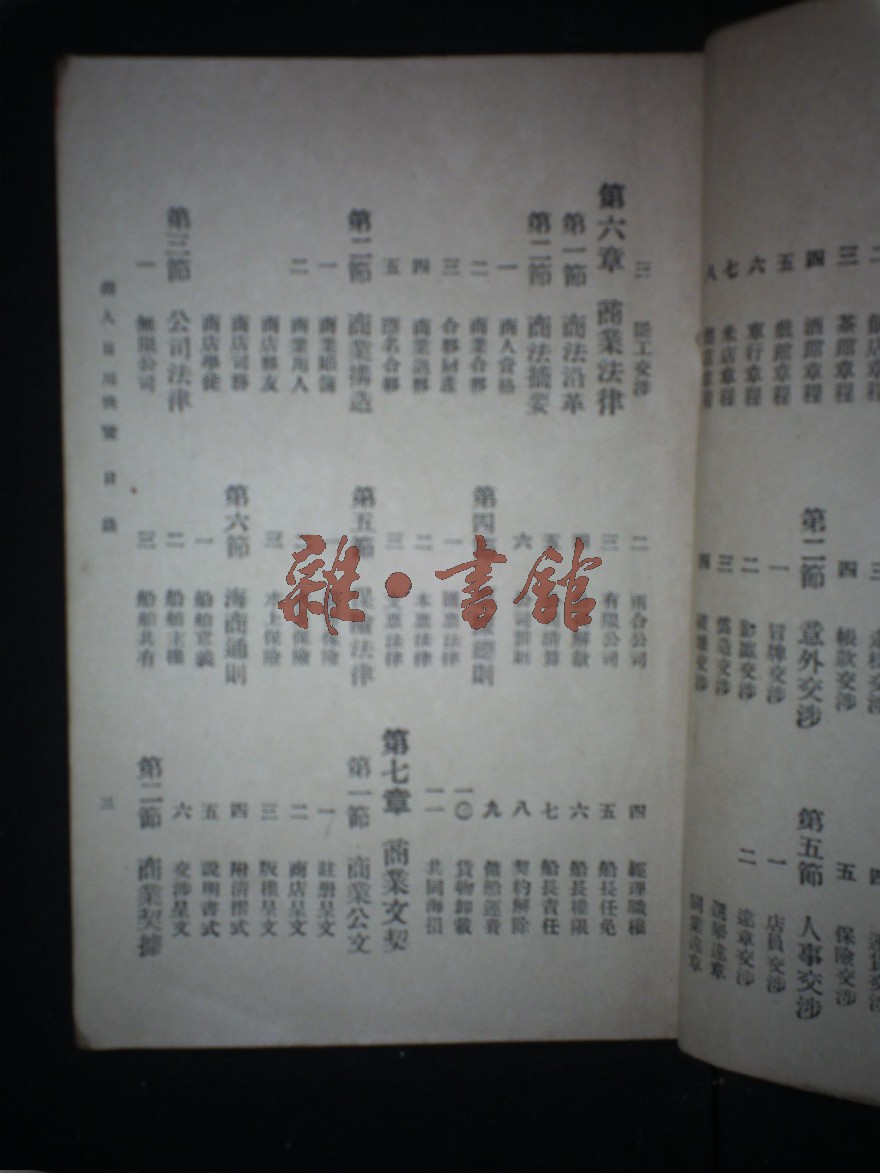 三 茶館章程
四 酒館章程
五 戲館章程
六 車行章程
七 米店章程
八
四 帳款交涉
第二節 意外交涉
一 冒牌交涉
二
三 偽造交涉
四
五 保險交涉
第五節 人事交涉
一 店員交涉
二 違章交涉
選舉違章
同業違章
三 罷工交涉
第六章 商業法律
第一節 商法沿革
第二節 商法摘要
一 商人資格
二 商業合夥
三 合夥財產
四 商業退夥
五 隱名合夥
第二節 商業構造
一 商業賬簿
二 商業用人
商店夥友
商店司務
商店學徒
第三節 公司法律
一 無限公司
二 兩合公司
三 有限公司
五
六
第四
一
二 本票法律
三 支票法律
第五節 保險法律
三 水上保險
第六節 海商通則
一 船舶意義
二 船舶主權
三 船舶共有
四 經理職權
五 船長任免
六 船長權限
七 船長責任
八 契約解除
九 傭船運費
一〇 貨物卸載
一一 共同海損
第七章 商業文契
第一節 商業公文
一 註冊呈文
二 商店呈文
三 版權呈文
四 附清摺式
五 說明書式
六 交涉呈文
第二節 商業契據
商人日用快覽 目錄
三
雜·書館